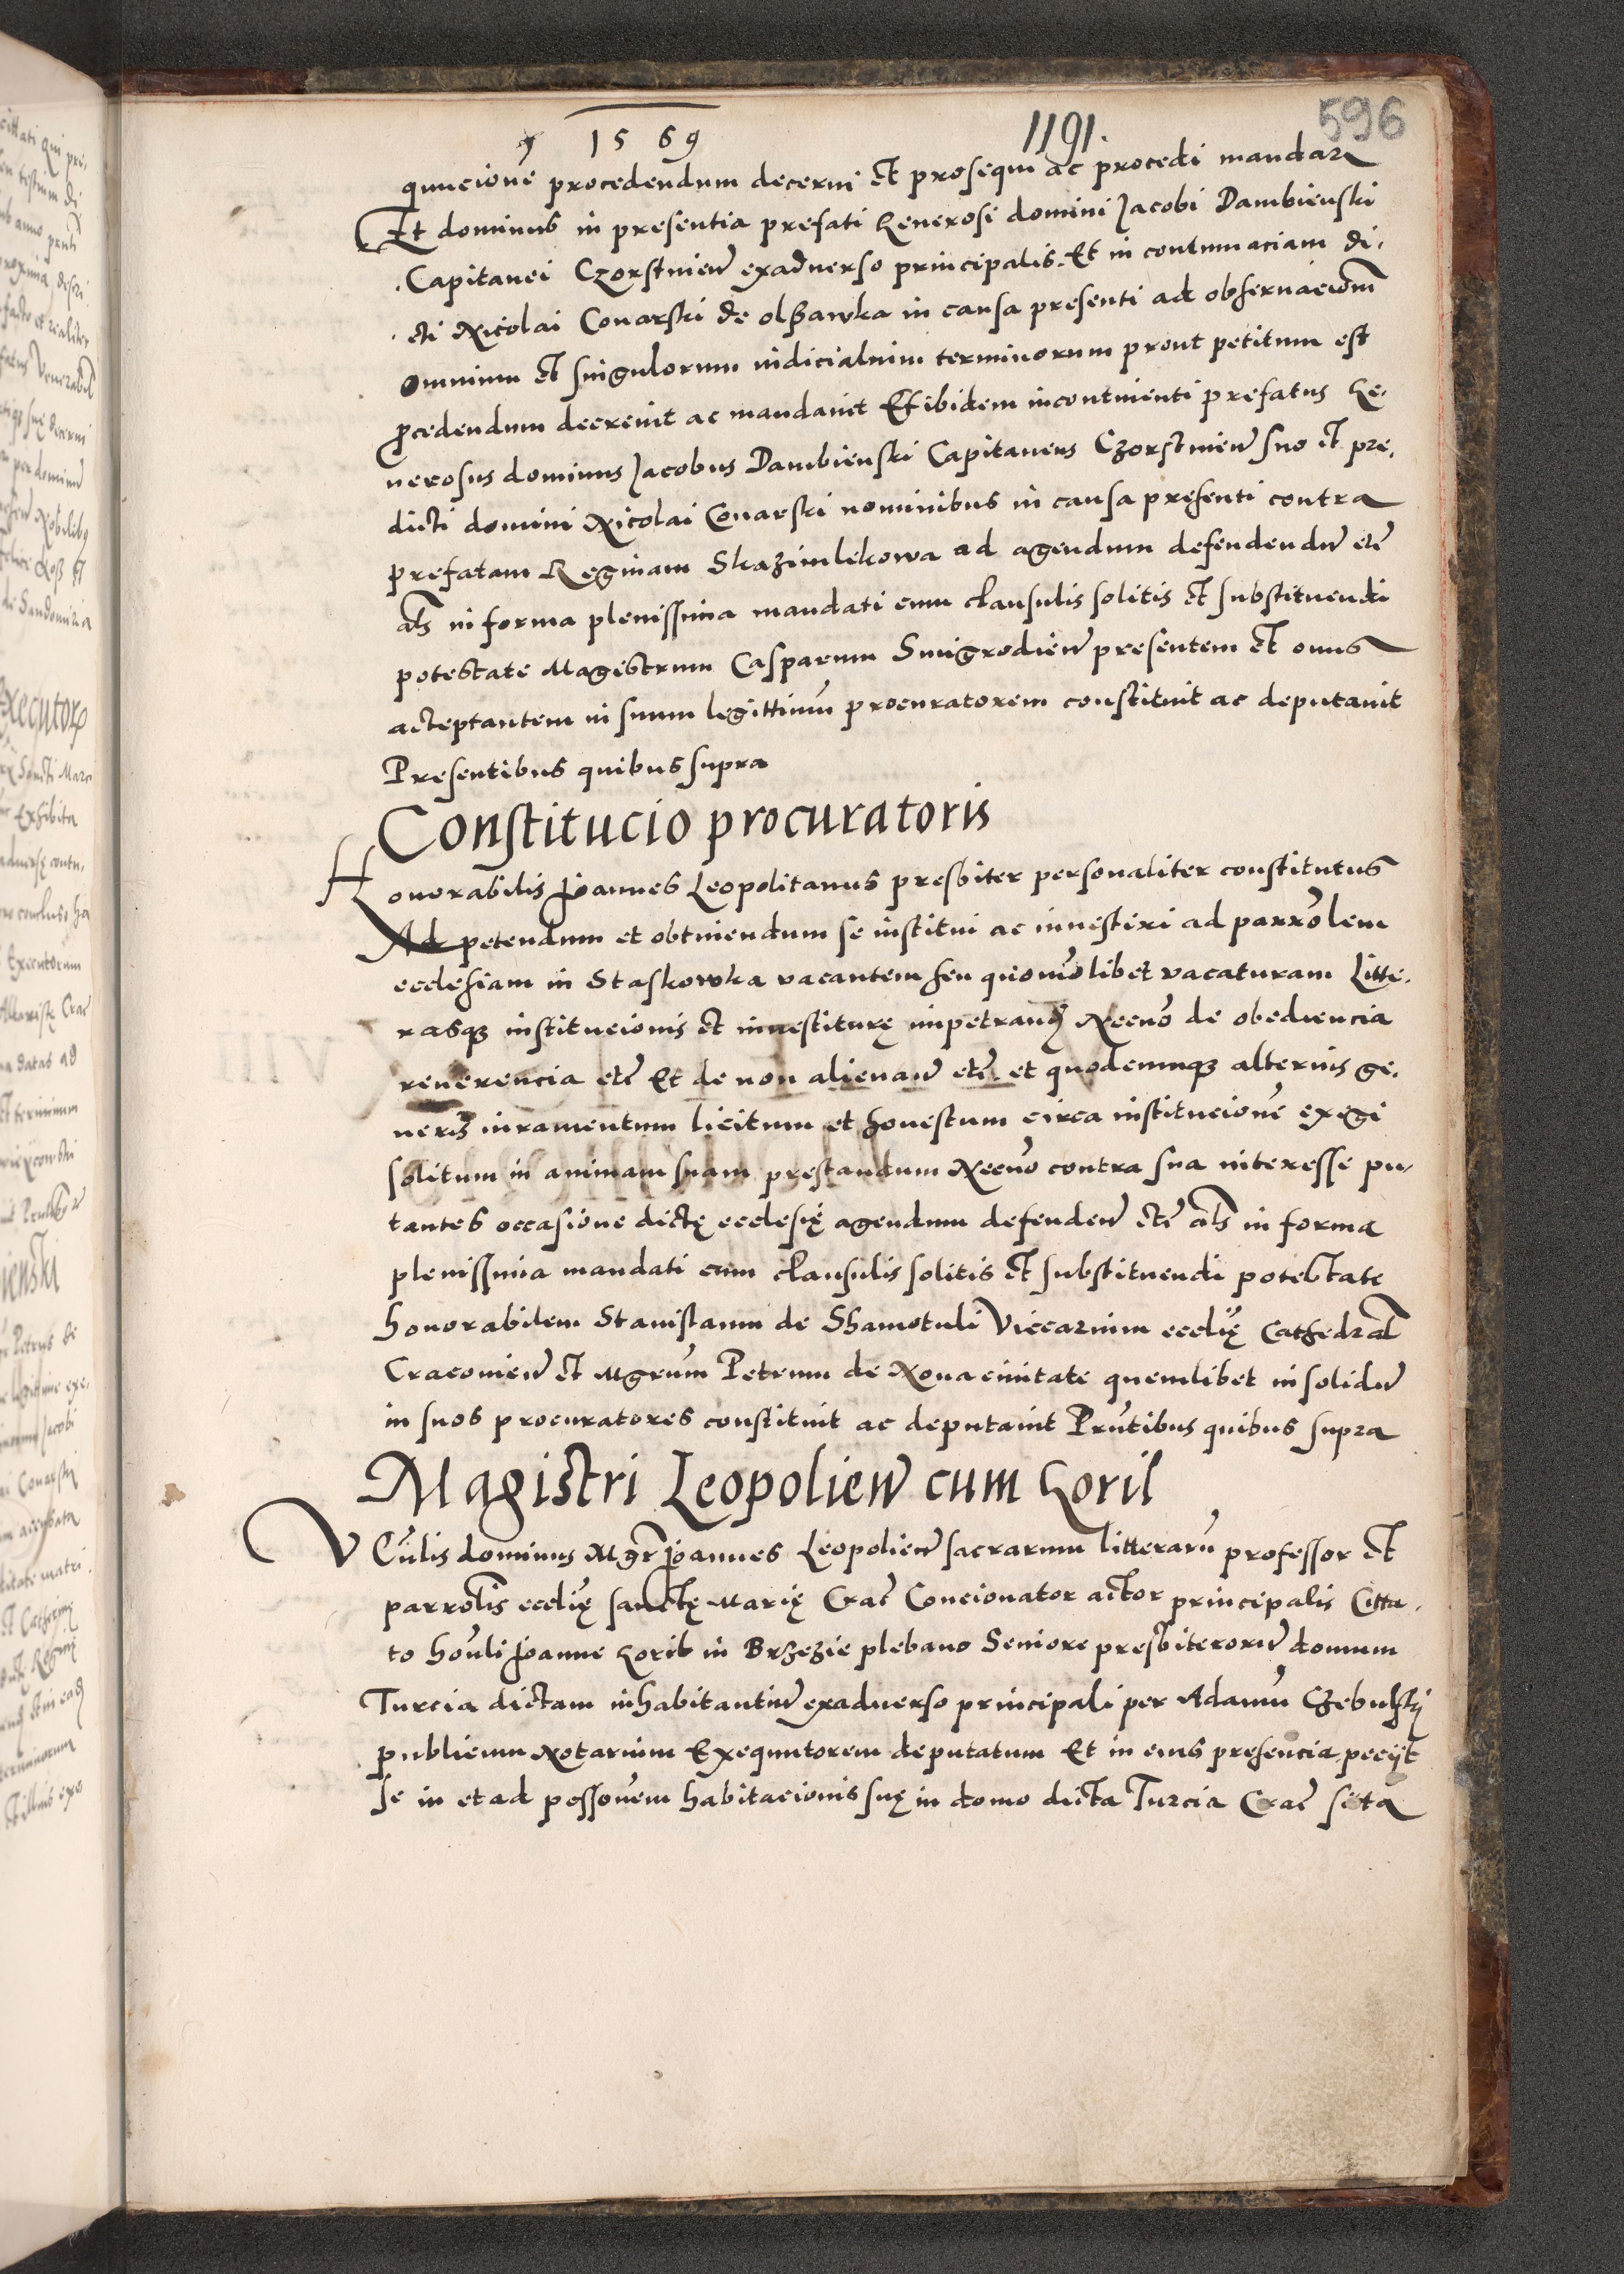 1569 1191. 596
qunicione procedendum decerni et prosequi ac procedi mandari
Et dominus in presentia prefati Generosi domini Jacobi Dambienski
Capitanei Czorstinen exadverso principalis. Et in contumaciam di-
cti Nicolai Conarski de olssawka in causa presenti ad observacionem
omnium et singulorum iudicialium terminorum prout petitum est
procedendum decrevit ac mandavit Et ibidem incontinenti prefatus Ge-
nerosus dominus Jacobus Dambienski Capitaneus Czorstinen suo et pre-
dicti domini Nicolai Conarski nominibus in causa presenti contra
prefatam Reginam Skazimlekowa ad agendum defendendum etc
als in forma plenissima mandati cum clausulis solitis et substituendi
potestate Magistrum Casparum Smigrodien presentem et onus
acceptantem in suum legittimum procuratorem constituit ac deputavit
Presentibus quibus supra
Constitucio procuratoris
Honorabilis Joannes Leopolitanus presbiter personaliter constitutus
Ad petendum et obtinendum se institui ac investiri ad parrolem
ecclesiam in Staskowka vacantem seu quomolibet vacaturam Litte-
rasque institucionis et investiturę impetrand Necno de obediencia
reverencia etc Et de non alienan etc. et quodcumque alterius ge-
neris iuramentum licitum et honestum circa institucione exigi
solitum in animam suam prestandum Necno contra sua interesse pu-
tantes occasione dictę ecclesię agendum defenden etc als in forma
plenissima mandati cum clausulis solitis et substituendi potestate
honorabilem Stanislaum de Shamotuli Viccarium ecclię Cathedral
Cracovien et Mgrum Petrum de Nova civitate quemlibet in solidum
in suos procuratores constituit ac deputavit Pntibus quibus supra
Magistri Leopolien cum Goril
Venlis dominus Mgr Joannes Leopolien sacrarum litterarum professor et
parrolis ecclię sanctę Marię Crac Concionator actor principalis Citta-
to honli Joanne Goril in Brzezie plebano Seniore presbiterorum domum
Turcia dictam inhabitantium exadverso principali per Adamum Czebulski
publicum Notarium Exequutorem deputatum Et in eius presencia peciit
se in et ad possonem habitacionis suę in domo dicta Turcia Crac sita